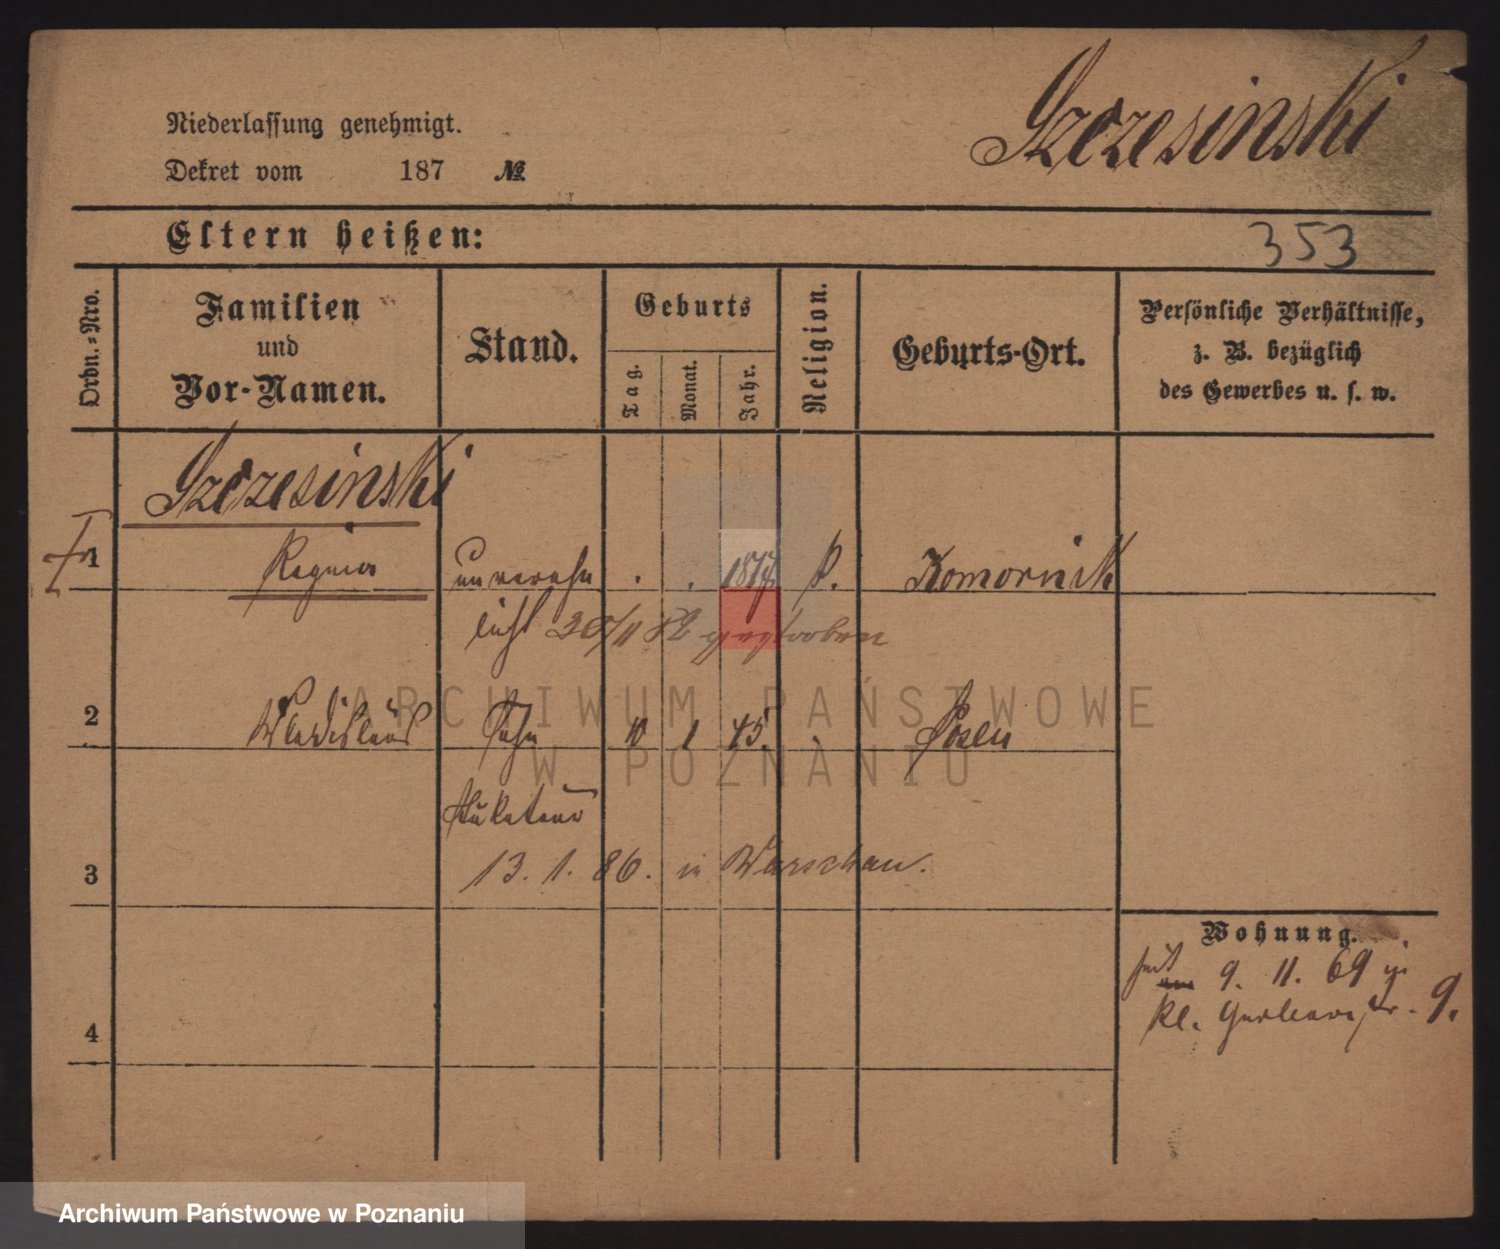 Szczesinski
Niederlassung genehmigt.
Dekret vom 187 №
Eltern heißen:
353
Ordn.-Nro.
Familien
und
Vor-Namen.
Stand.
Geburts
Tag.
Monat.
Jahr.
Religion.
Geburts-Ort.
Persönliche Verhältnisse,
z. B. bezüglich
des Gewerbes u. s. w.
Szczesinski
1 Regina unvereh . . k. Komornik
licht 20/11 82 gestorben
2 Wladislaus Sohn 10 1 45. . Posen
Stukateur
3 13. 1. 86. in Warschau.
Wohnung.
seit 9. 11. 69
Kl. Gerberstr. 9.
4
ARCHIWUM PAŃSTWOWE
W POZNANIU
Archiwum Państwowe w Poznaniu